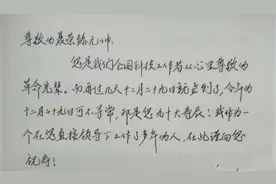 尊敬的聂荣臻元帅:
您是我们全国科技工作者从心里尊敬的
革命先辈。勿再过几天十二月二十九日就到了,今年的
十二月二十九日可不寻常,那是您九十大寿辰!我作为一
个在您直接领导下工作了多年的人,在此谨向您
祝寿!